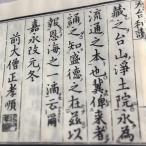 藏之台山淨土院永為
流通之本也冀佛來者
誦之知盛德之在茲以
報恩海之一滴云爾
嘉永改元冬
前大僧正孝順